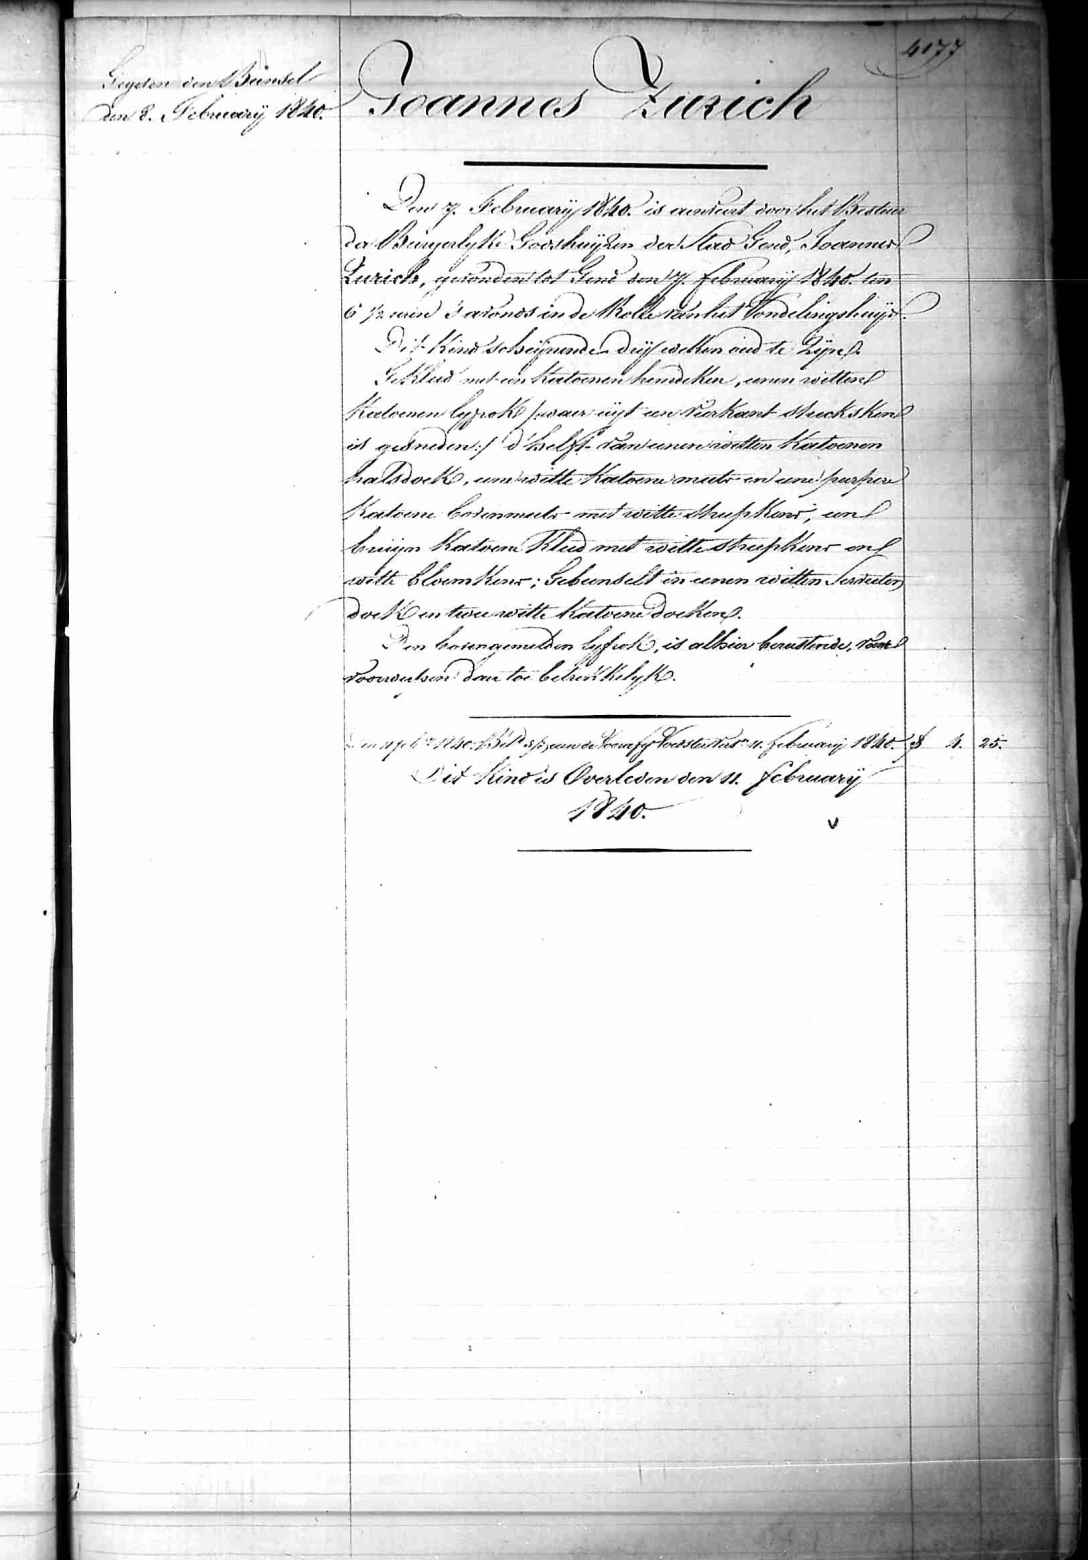 4177
Gegeven den Bunsel
den 8. February 1840.
Joannes Zurich
Den 7. February 1840. is aenveert door het Bestier
der Burgerlyke Godshuyzen der Stad Gend, Joannes
Zurich, gevonden tot Gend den 7. february 1840. ten
6 1/2 uren s'avonds in de Rolle van het Vondelingshuys.
Dit Kind scheynende dry weken oud te zyn.
Gekleed met een katoenen hemdeken, eenen witten
katoenen lyfrok /: waer uyt een vierkant stuksken
is gesneden :/ d'helft van eenen witten katoenen
halsdoek, eene witte katoene muts en eene purpere
katoene bovenmuts met witte streepkens; een
bruyn katoene kleed met witte streepkens en
witte bloemkens; Gebunselt in eenen witten servietten
doek en twee witte katoene doeken.
Den bovengemelden lyfrok, is alhier berustende, voor
voorwerpen daer toe betrekkelyk.
1840. aen de Voedster 11. february 1840. 4. 25.
Dit Kind is Overleden den 11. february
1840.